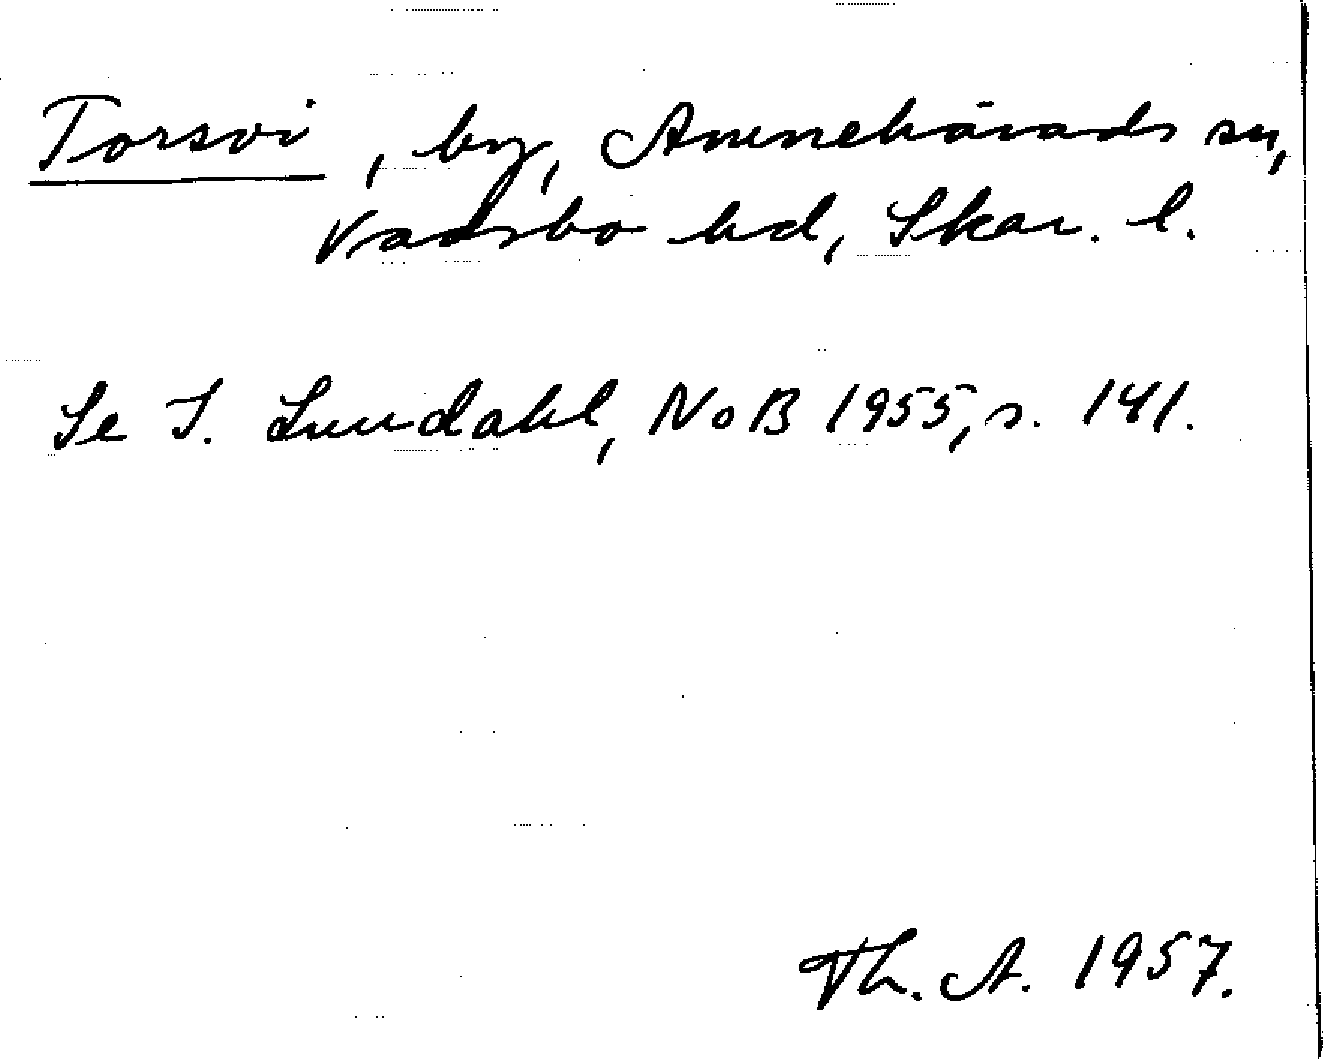 Torsvi, by, Amnehärads sn,
Vadsbo hd, Skar. l.
Se I. Lundahl, NoB 1955, s. 141.
Th. A. 1957.